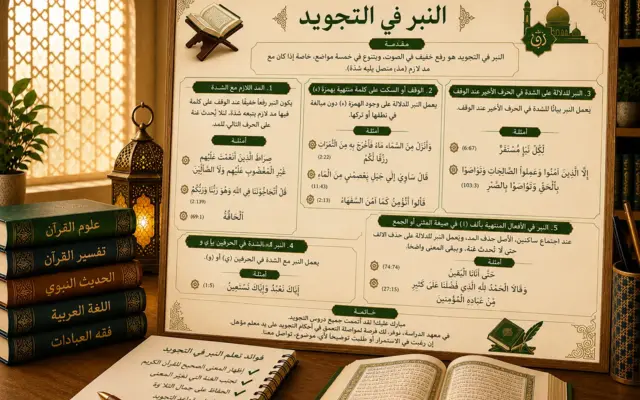 النبر في التجويد
مقدمة
النبر في التجويد هو رفع خفيف في الصوت، ويتنوع في خمسة مواضع، خاصة إذا كان مع
مد لازم (مد متصل يليه شدة).
1. المد اللازم مع الشدة
يكون النبر رفعاً خفيفًا عند الوقف على كلمة
فيها مد لازم يتبعه شدة، لئلا يُحدث غنة
على الحرف التالي، للمد.
أمثلة
صِرَاطَ الَّذِينَ أَنْعَمْتَ عَلَيْهِمْ
غَيْرِ الْمَغْضُوبِ عَلَيْهِمْ وَلَا الضَّالِّينَ
قُلْ أَتُحَاجُّونَنَا فِي اللَّهِ وَهُوَ رَبُّنَا وَرَبُّكُمْ
(2:139)
الْحَاقَّةُ
(69:1)
2. الوقف أو السكت على كلمة منتهية بهمزة (ء)
يعمل النبر للدلالة على وجود الهمزة (ء) دون مبالغة
في نطقها أو تركها.
أمثلة
وَأَنْزَلَ مِنَ السَّمَاءِ مَاءً فَأَخْرَجَ بِهِ مِنَ الثَّمَرَاتِ
رِزْقًا لَّكُمْ
(2:22)
قَالَ سَآوِي إِلَىٰ جَبَلٍ يَعْصِمُنِي مِنَ الْمَاءِ
(11:43)
قَالُوا أَنُؤْمِنُ كَمَا آمَنَ السُّفَهَاءُ
(2:13)
3. النبر للدلالة على الشدة في الحرف الأخير عند الوقف
يعمل النبر بيانًا للشدة في الحرف الأخير عند الوقف.
أمثلة
لِكُلِّ نَبَإٍ مُسْتَقَرٌّ
(6:67)
إِلَّا الَّذِينَ آمَنُوا وَعَمِلُوا الصَّالِحَاتِ وَتَوَاصَوْا
بِالْحَقِّ وَتَوَاصَوْا بِالصَّبْرِ
(103:3)
4. النبر الشدة في الحرفين ي أو و
يعمل النبر مع الشدة في الحرفين (ي) أو (و).
أمثلة
إِيَّاكَ نَعْبُدُ وَإِيَّاكَ نَسْتَعِينُ
(1:5)
5. النبر في الأفعال المنتهية بألف (ا) في صيغة المثنى أو الجمع
عند اجتماع ساكنين، الأصل حذف المد، ويعمل النبر للدلالة على حذف الألف
حتى لا تحدث غنة، ويبقى المعنى واضحًا.
أمثلة
حَتَّىٰ أَتَانَا الْيَقِينُ
(74:74)
وَقَالَا الْحَمْدُ لِلَّهِ الَّذِي فَضَّلَنَا عَلَىٰ كَثِيرٍ
مِّنْ عِبَادِهِ الْمُؤْمِنِينَ
(27:15)
خاتمة
مبارك عليك! لقد أتممت جميع دروس التجويد.
في معهد الدراسة، نوفر لك فرصة لمواصلة التعمق في أحكام التجويد على يد معلم مؤهل.
إن رغبت في الاستمرار أو طلبت توضيحًا لأي موضوع، تواصل معنا
علوم القرآن
تفسير القرآن
الحديث النبوي
اللغة العربية
فقه العبادات
فوائد تعلم النبر في التجويد
إظهار المعنى الصحيح للقرآن الكريم
تجنب الغنة التي تغيّر المعنى
الحفاظ على جمال التلاوة